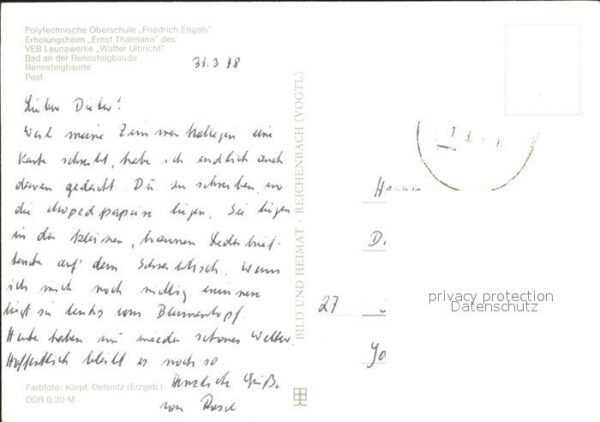 Polytechnische Oberschule „Friedrich Engels"
Erholungsheim „Ernst Thälmann" des
VEB Leunawerke „Walter Ulbricht"
Bad an der Rennsteigbaude
Rennsteigbaude
Post
31.3.78
Lieber Dieter!
Weil meine Zimmerkollegen eine
Karte schreibt, habe ich endlich auch
daran gedacht Dir zu schreiben, wo
die papiere liegen. Sie liegen
in der kleinen, braunen Lederbrief-
tasche auf dem Schreibtisch. Wenn
ich mich noch richtig erinnere
liegt sie links vom Blumentopf.
Heute haben wir wieder schönes Wetter.
Hoffentlich bleibt es noch so.
Herzliche Grüße
von
Farbfoto: Karpf, Oelsnitz (Erzgeb.)
DDR 0,20 M
BILD UND HEIMAT · REICHENBACH (VOGTL)
27
privacy protection
Datenschutz